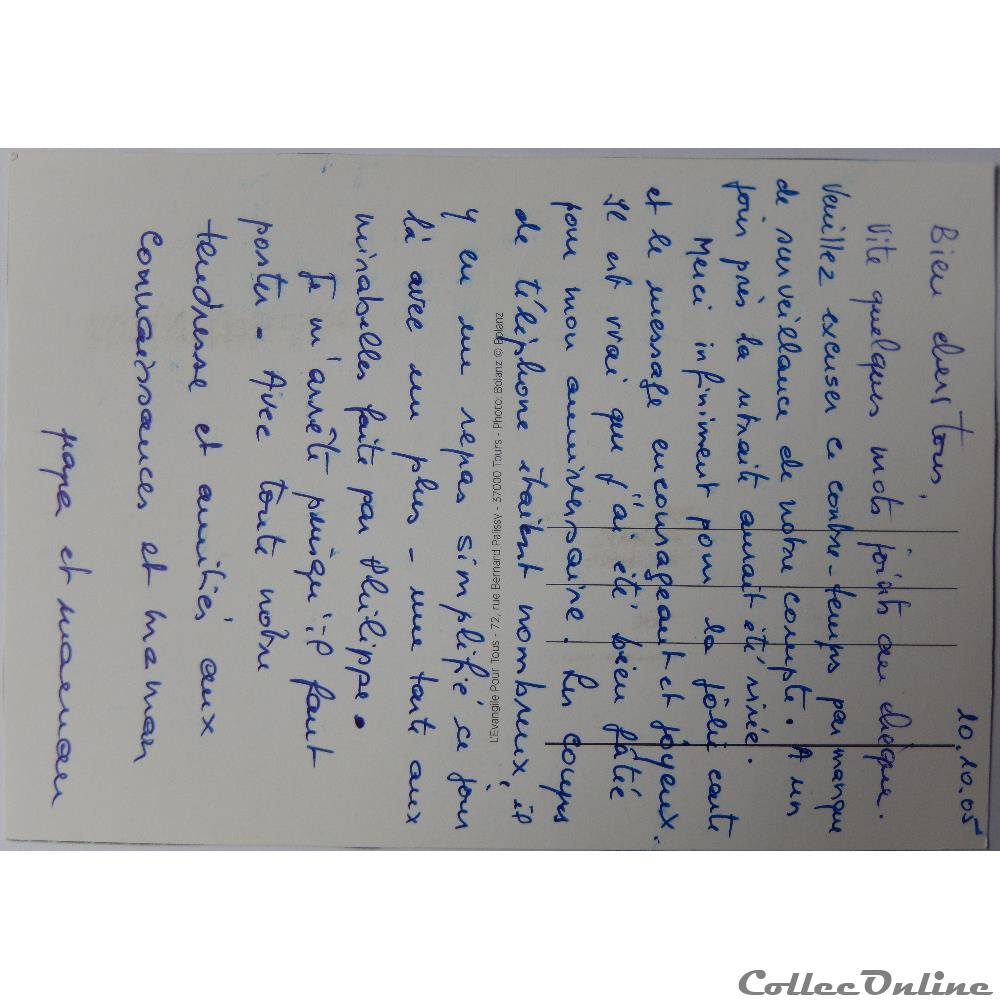 10.10.05
Bien chers tous,
Vite quelques mots joints au chèque.
Veuillez excuser ce contre-temps par manque
de surveillance de notre compte. A un
jour près la retrait aurait été visé.
Merci infiniment pour la jolie carte
et le message encourageant et joyeux.
Il est vrai que j'ai été bien fâtée
pour mon anniversaire. Les coups
de téléphone étaient nombreux, il
y eu un repas simplifié ce jour
là avec un plus - une tarte aux
mirabelles faite par Philippe.
Je m'arrête puisqu'il faut
poster. Avec toute notre
tendresse et amitiés aux
connaissances et maman
papa et maman
L'Evangile Pour Tous - 72, rue Bernard Palissy - 37000 Tours - Photo: Bolanz © Bolanz
CollecOnline